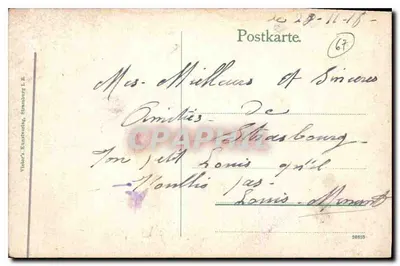 le 28-11-18-
Postkarte.
67
Mes - Meilleures et Sincères
Amitiés - de
Strasbourg -
Ton petit Louis qu'il
n'oublie pas -
Louis -
Verlag, Strassburg i. E.